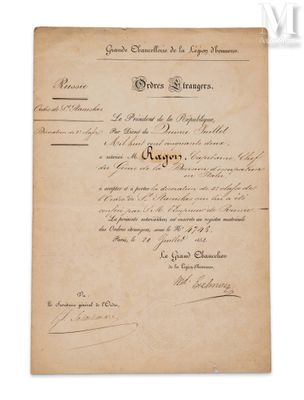 M
MILLON
Grande Chancellerie de la Légion d'honneur.
Russie
Ordres Étrangers.
Ordre de St Stanislas
Décoration de 2e classe
Le Président de la République,
Par Décret du Juillet
Mil huit cent cinquante deux,
a autorisé M. Ragon, Capitaine Chef
du Génie de la Division d'occupation
en Italie
à accepter et à porter la décoration de 2e classe de
l'Ordre de St Stanislas qui lui a été
conférée par S. M. l'Empereur de Russie
La présente autorisation est inscrite au registre matricule
des Ordres étrangers, sous le No 4745
Paris, le 20 Juillet 1852
Le Grand Chancelier
de la Légion d'honneur,
Vu:
Le Secrétaire général de l'Ordre,